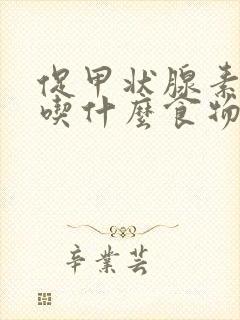 促甲状腺素
喫什麼食物
辛業芸